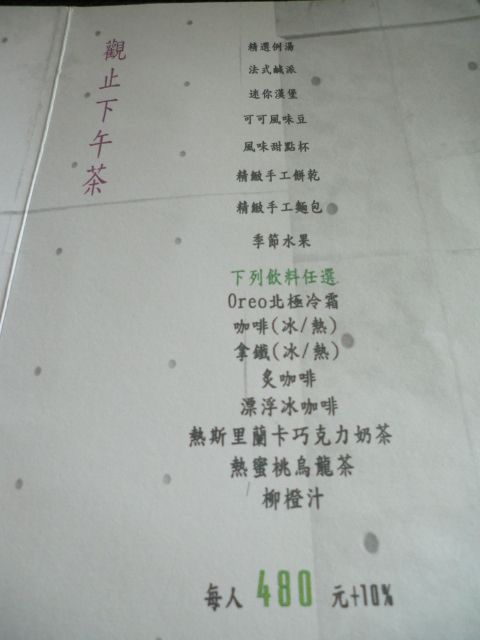 觀止下午茶
精選例湯
法式鹹派
迷你漢堡
可可風味豆
風味甜點杯
精緻手工餅乾
精緻手工麵包
季節水果
下列飲料任選
Oreo北極冷霜
咖啡(冰/熱)
拿鐵(冰/熱)
炙咖啡
漂浮冰咖啡
熱斯里蘭卡巧克力奶茶
熱蜜桃烏龍茶
柳橙汁
每人 480 元+10%